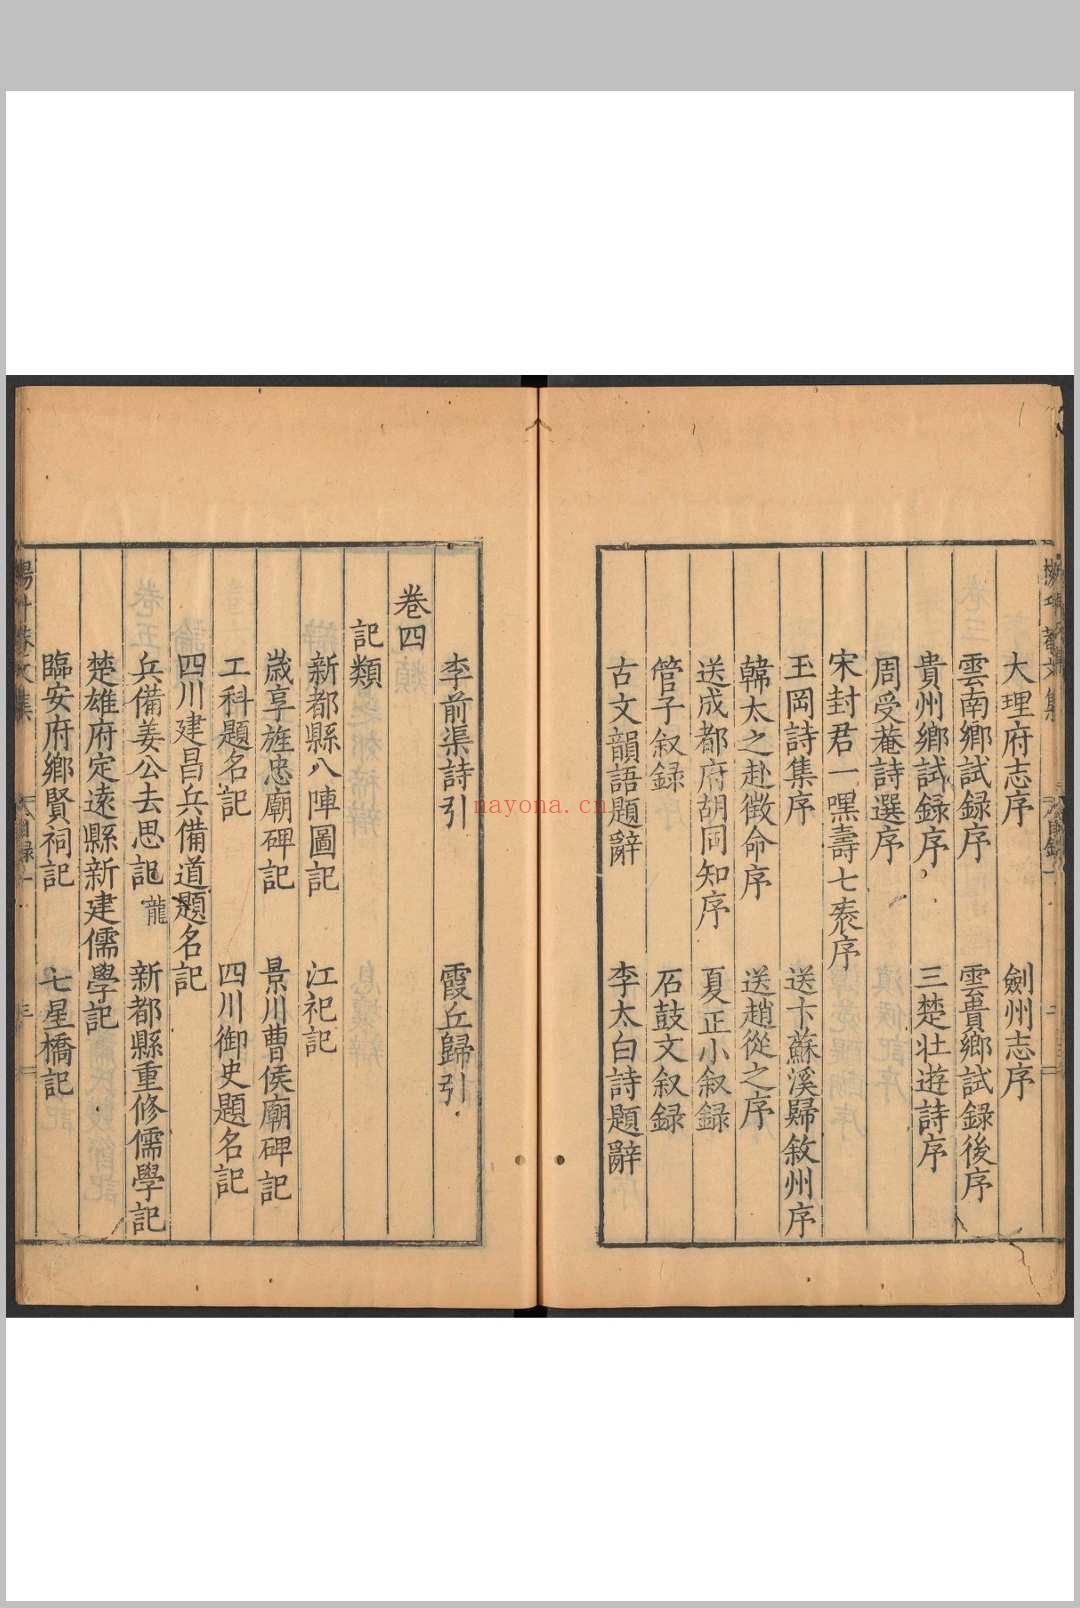 大理府志序　劍州志序
雲南鄉試録序　雲貴鄉試録後序
貴州鄉試録序　三楚壯遊詩序
周受菴詩選序
宋封君一嘿壽七袠序
玉岡詩集序　送卞蘇溪歸敘州序
韓太之赴徵命序　送趙從之序
送成都府胡同知序　夏正小叙録
管子叙録　石鼓文叙録
古文韻語題辭　李太白詩題辭
李前渠詩引　霞丘歸引
卷四
記類
新都縣八陣圖記　江祀記
歲享旌忠廟碑記　景川曹侯廟碑記
工科題名記　四川御史題名記
四川建昌兵備道題名記
兵備姜公去思記龍　新都縣重修儒學記
楚雄府定遠縣新建儒學記
臨安府鄉賢祠記　七星橋記
nayona.cn